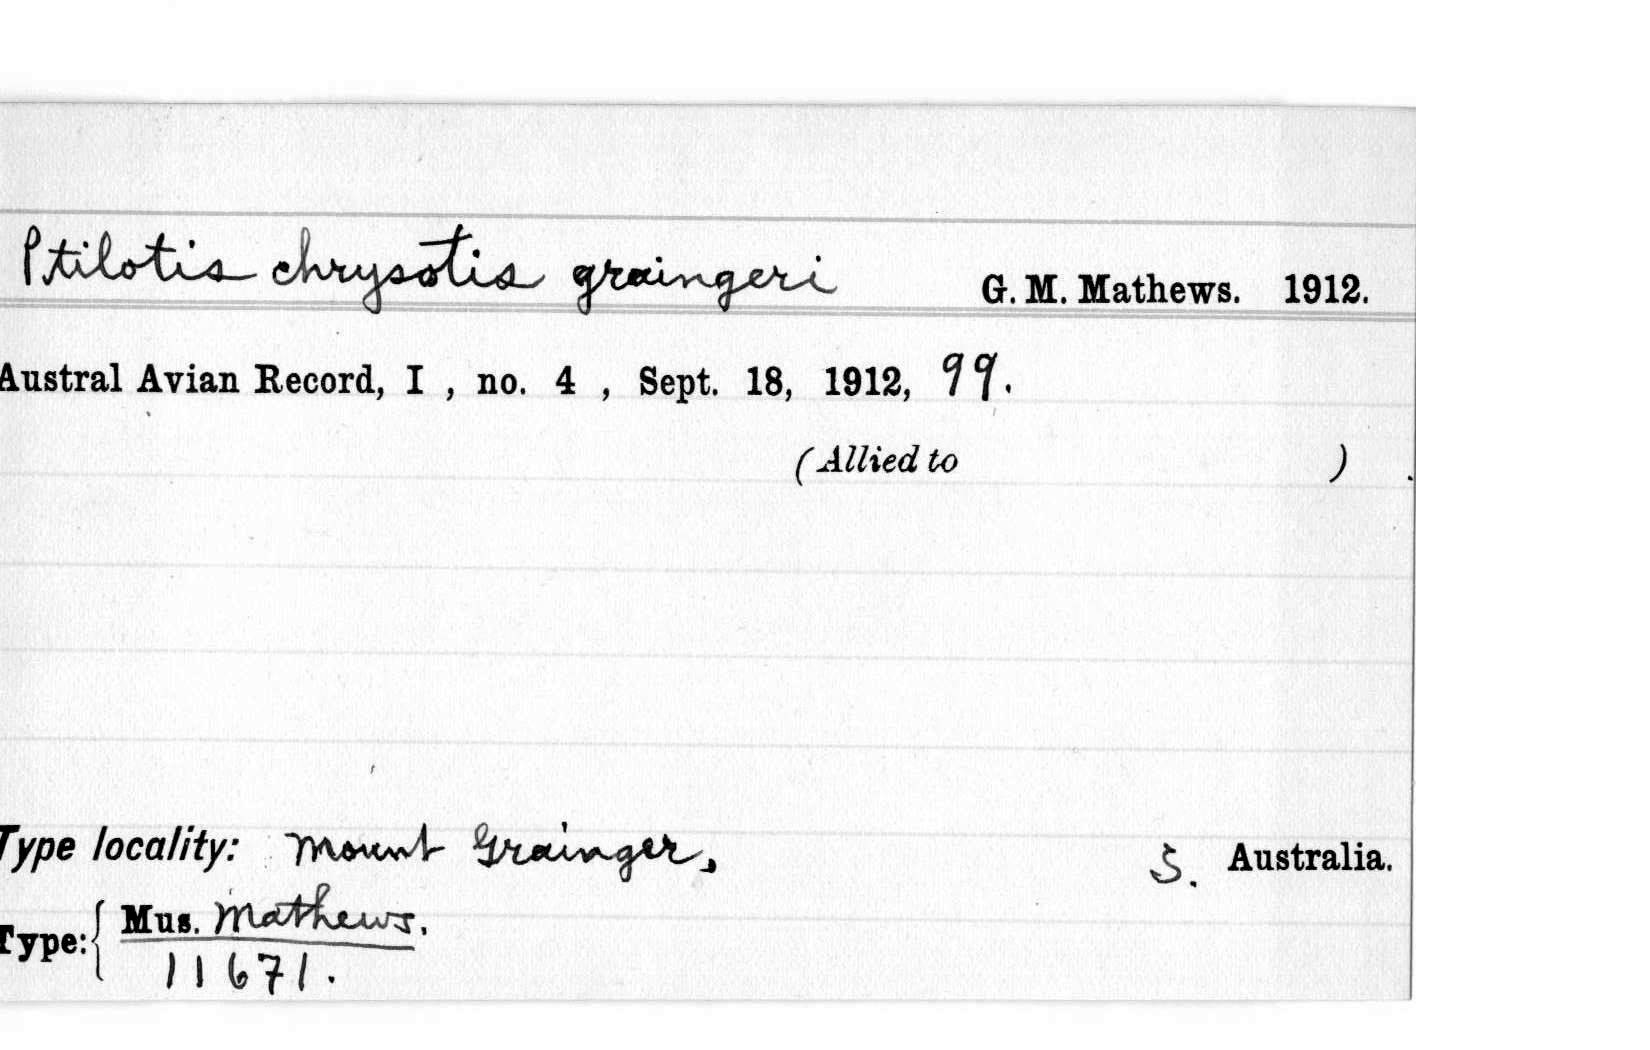 Ptilotis chrysotis graingeri G. M. Mathews. 1912.
Austral Avian Record, I , no. 4 , Sept. 18, 1912, 99.
(Allied to ) .
Type locality: Mount Grainger, S. Australia.
Type: { Mus. Mathews.
11671.